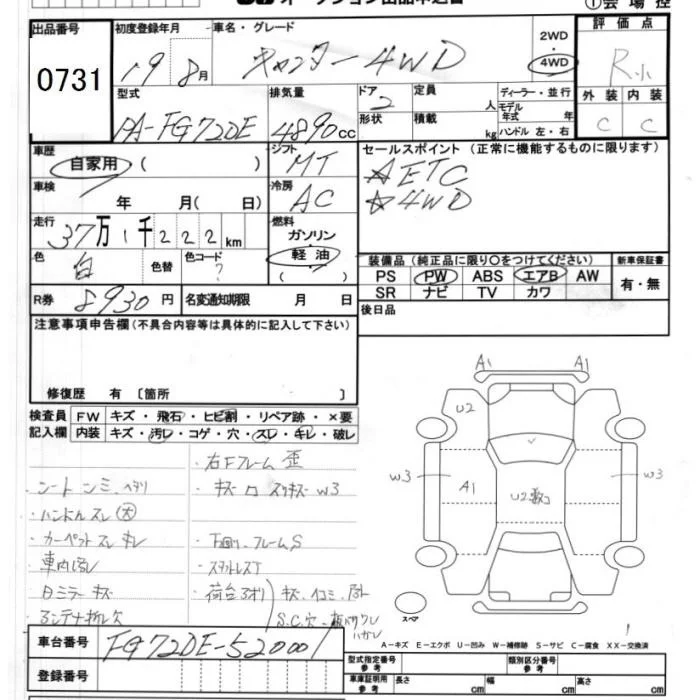 オークション出品申込書
①会場控
出品番号 初度登録年月 車名・グレード 評価点
0731 19 8月 キャンター4WD 2WD 4WD R小
型式 排気量 ドア 定員 ディーラー・並行 外装 内装
PA-FG72DE 4890cc 2 人 モデル年式 年 C C
形状 積載 kg ハンドル 左・右
車歴 シフト セールスポイント(正常に機能するものに限ります)
自家用 ( ) MT ☆ETC
車検 冷房 ☆4WD
年 月( 日) AC
走行 燃料
37万1千222km ガソリン
色 色替 色コード 軽油
白 ? ( )
装備品(純正品に限り○をつけてください) 新車保証書
PS PW ABS エアB AW 有・無
SR ナビ TV カワ
R券 8930円 名変通知期限 月 日 後日品
注意事項申告欄(不具合内容等は具体的に記入して下さい)
修復歴 有〔箇所 〕
検査員 FW キズ・飛石・ヒビ割・リペア跡・×要
記入欄 内装 キズ・汚レ・コゲ・穴・スレ・キレ・破レ
・右Fフレーム歪
・シートシミ、ヘタリ
・ハンドルスレ(大)
・カーペットスレ キレ
・下回り、フレームS
・車内汚レ
・ミラー キズ
・荷台
・アンテナ折レ欠
S.C.穴
A1 A1
U2
W3 A1 U2 W3
スペア
車台番号 FG72DE-520001
登録番号
A-キズ E-エクボ U-凹み W-補修跡 S-サビ C-腐食 XX-交換済
型式指定番号 参考 類別区分番号 参考
車庫証明用 参考 長さ cm 幅 cm 高さ cm